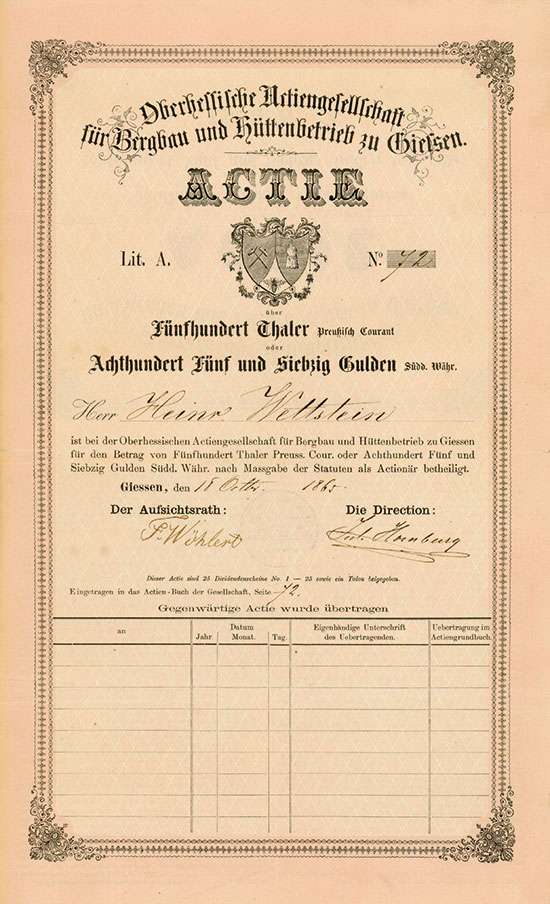 Oberhessische Actiengesellschaft
für Bergbau und Hüttenbetrieb zu Giessen.
ACTIE
Lit. A. No 72
über
Fünfhundert Thaler Preußisch Courant
oder
Achthundert Fünf und Siebzig Gulden Südd. Währ.
Herr Heinr Wettstein
ist bei der Oberhessischen Actiengesellschaft für Bergbau und Hüttenbetrieb zu Giessen
für den Betrag von Fünfhundert Thaler Preuss. Cour. oder Achthundert Fünf und
Siebzig Gulden Südd. Währ. nach Massgabe der Statuten als Actionär betheiligt.
Giessen, den 18 Octbr. 1865.
Der Aufsichtsrath: Die Direction:
F. Wöhlert Hornburg
Dieser Actie sind 25 Dividendenscheine No. 1 — 25 sowie ein Talon beigegeben.
Eingetragen in das Actien-Buch der Gesellschaft, Seite 72.
Gegenwärtige Actie wurde übertragen
an Datum Eigenhändige Unterschrift Uebertragung im
Jahr. Monat. Tag. des Uebertragenden. Actiengrundbuch.